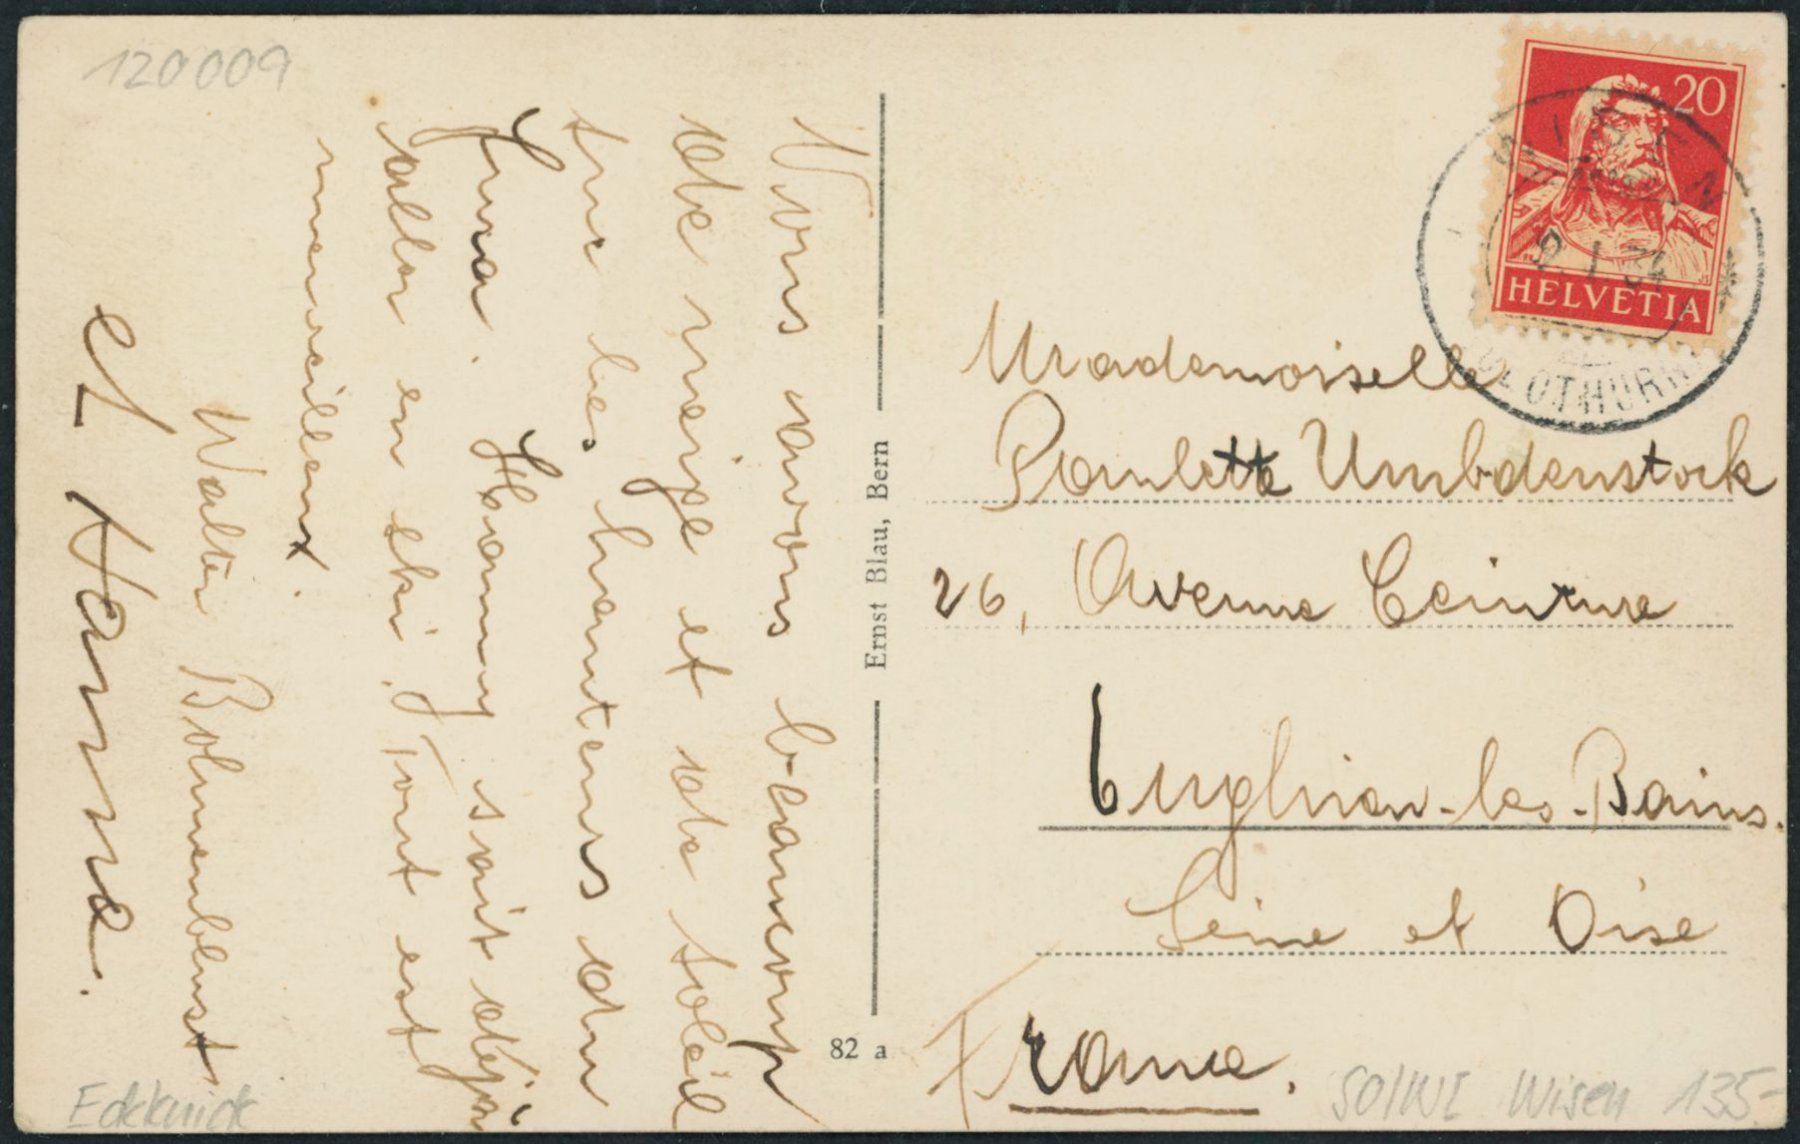 120009
Nous avons beaucoup
de neige et de soleil
sur les hauteurs du
Jura. Hanny sait déjà
aller en ski. Tout est
merveilleux.
Walter
et Hanna.
Eckknick
Ernst Blau, Bern
82 a
20
HELVETIA
WISEN
I 34
SOLOTHURN
Mademoiselle
Paulette Umbdenstock
26, Avenue Ceinture
Enghien-les-Bains.
Seine et Oise
France.
SO/WI Wisen 135-